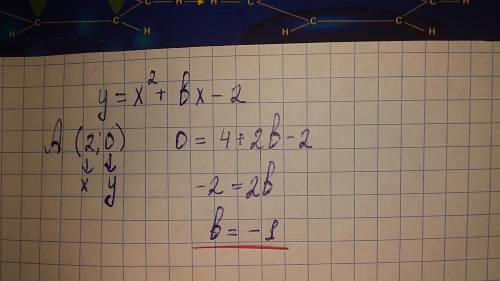 C C H → H C C H
C C
y = x² + bx - 2
A (2; 0) 0 = 4 + 2b - 2
↓ ↓
x y -2 = 2b
b = -1